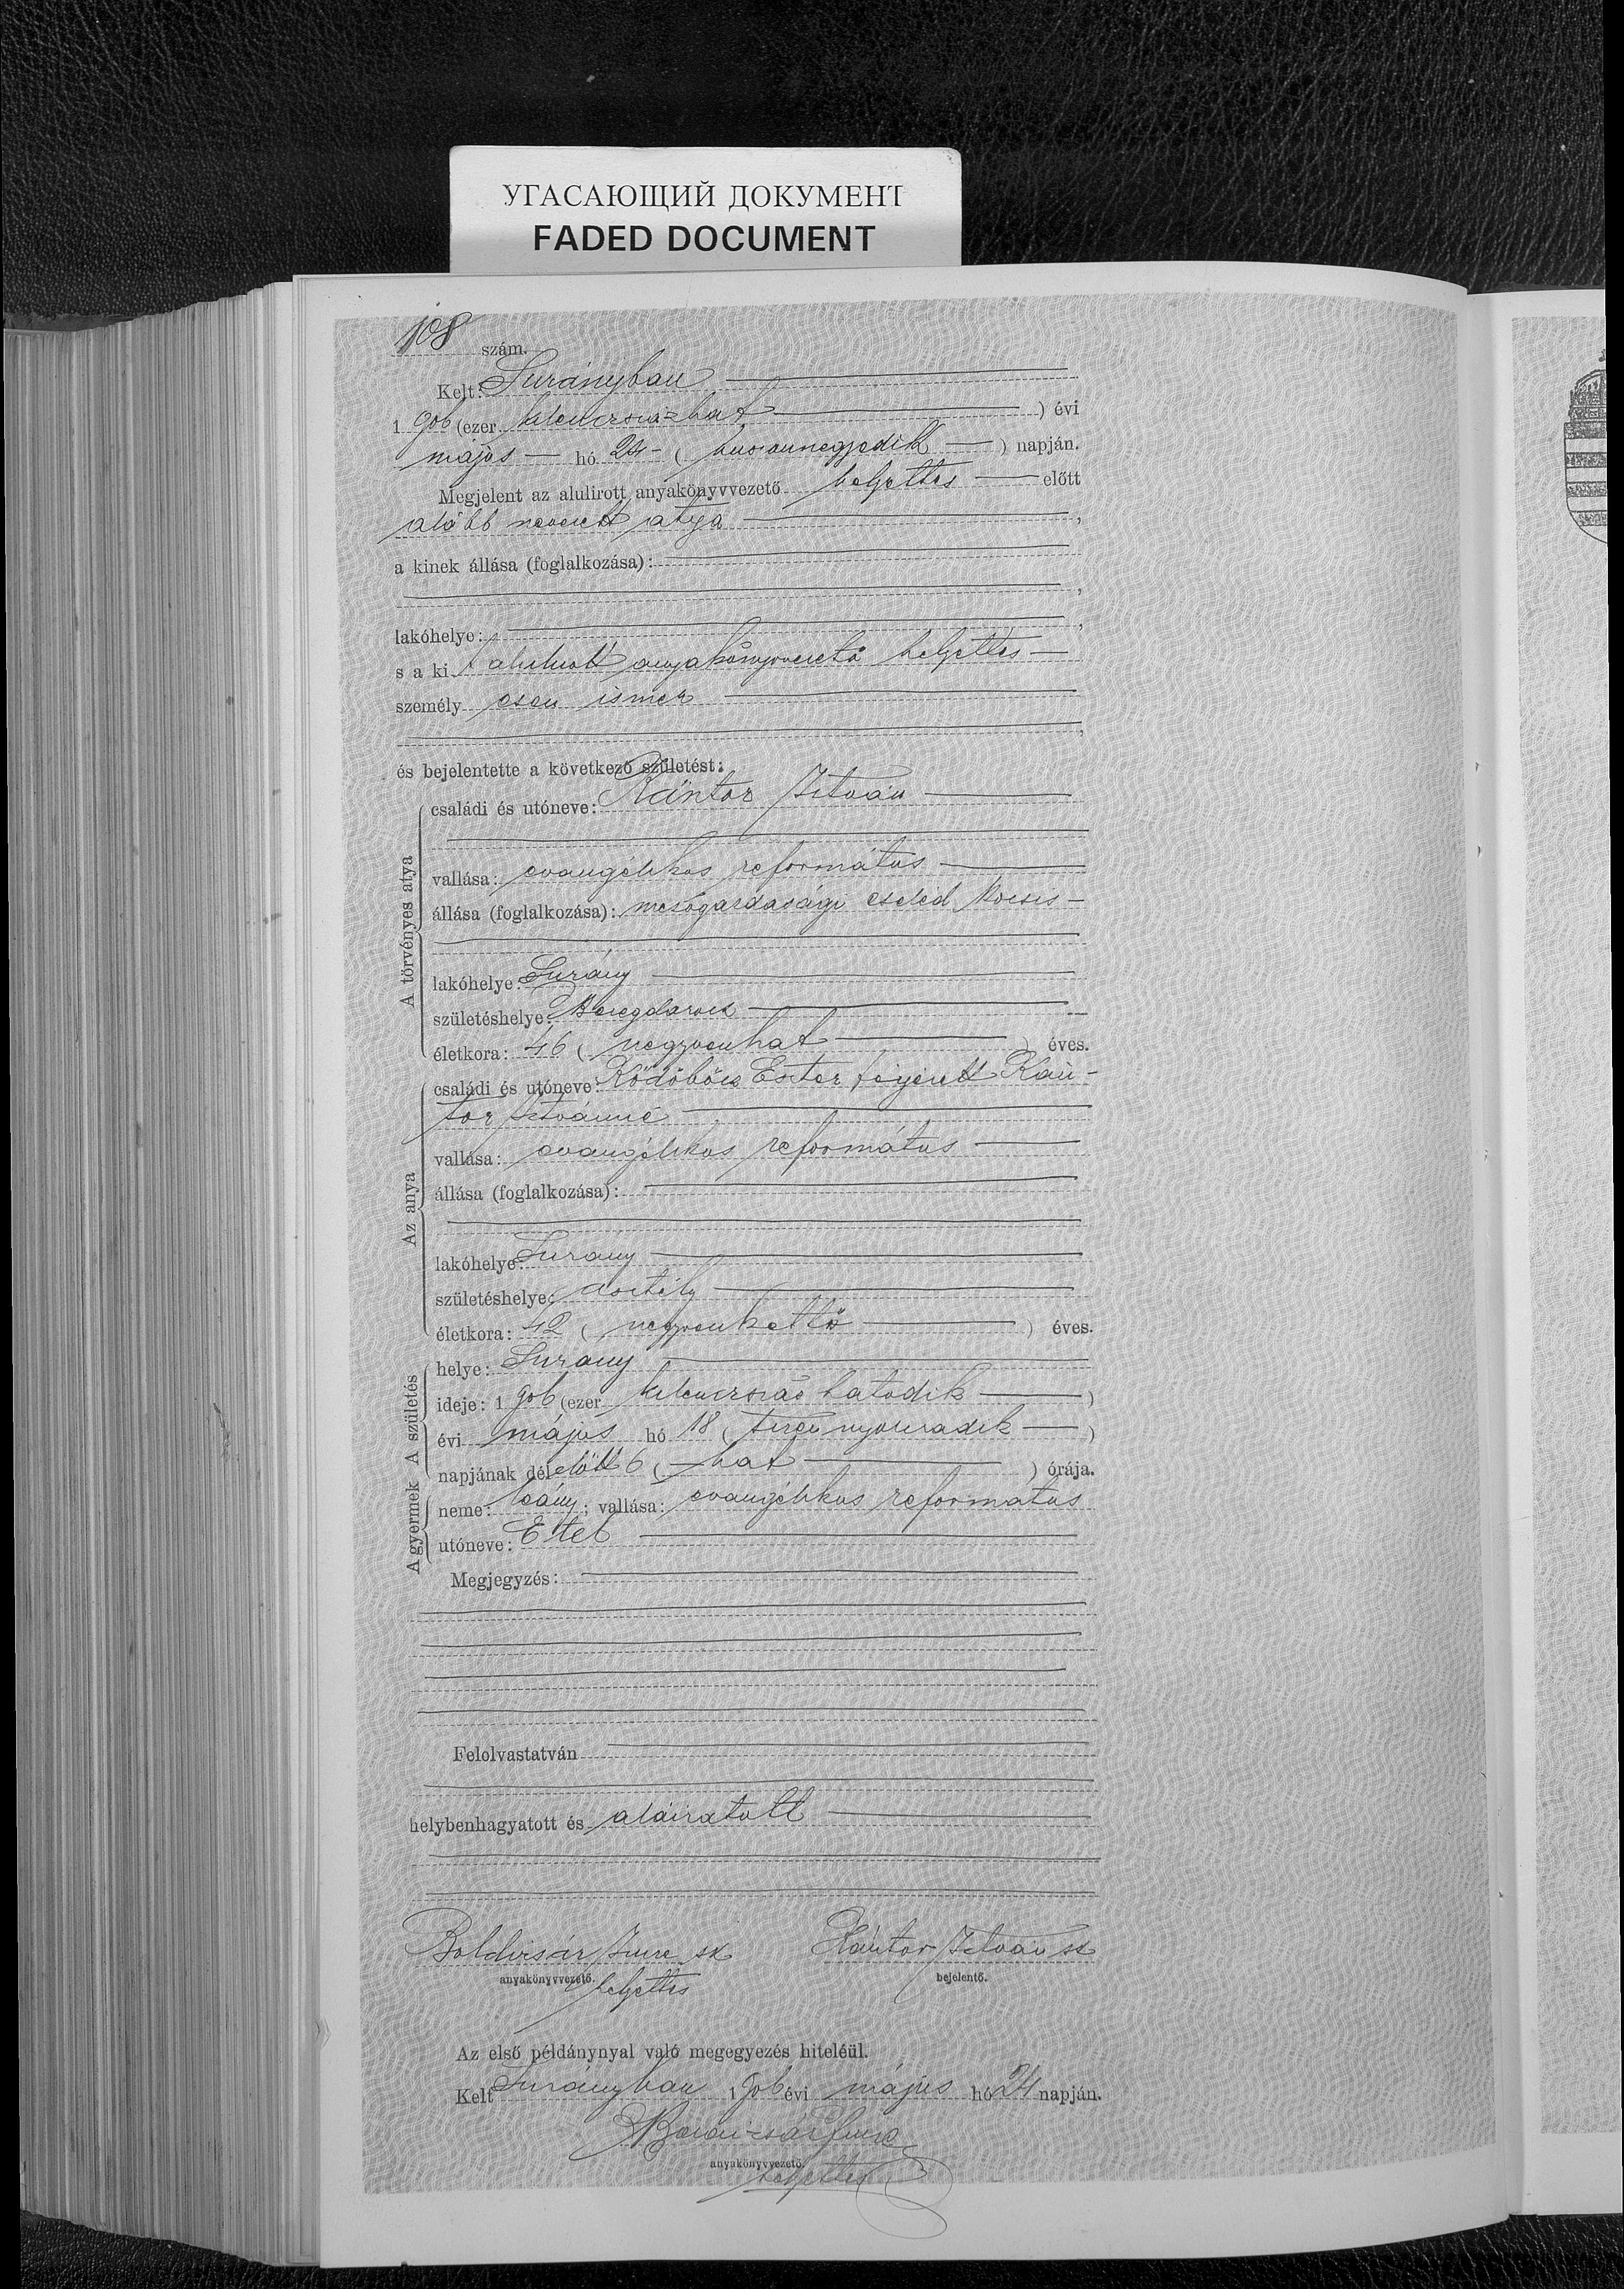 УГАСАЮЩИЙ ДОКУМЕНТ
FADED DOCUMENT
108 szám.
Kelt: Surányban
1 906 (ezer kilenczszázhat ) évi
május hó 24 ( huszonnegyedik ) napján.
Megjelent az alulirott anyakönyvvezető helyettes előtt
alább nevezett atya ,
a kinek állása (foglalkozása):
,
lakóhelye: ,
s a ki alulirott anyakönyvvezető helyettes
személy esen ismer
,
és bejelentette a következő születést:
A törvényes atya
családi és utóneve: Kántor István
vallása: evangélikus református
állása (foglalkozása): mezőgazdasági cseléd kocsis
lakóhelye: Surány
születéshelye: Beregdarócz
életkora: 46 ( negyvenhat ) éves.
Az anya
családi és utóneve: Ködöböcz Eszter férjezett Kán-
tor Istvánné
vallása: evangélikus református
állása (foglalkozása):
lakóhelye: Surány
születéshelye: Asztély
életkora: 42 ( negyvenkettő ) éves.
A gyermek A születés
helye: Surány
ideje: 1 906 (ezer kilenczszáz hatodik )
évi május hó 18 ( tizennyolczadik )
napjának dél előtt 6 ( hat ) órája.
neme: leány; vallása: evangélikus református
utóneve: Etel
Megjegyzés:
Felolvastatván
helybenhagyatott és aláiratott
Boldizsár Imre sk Kántor István sk
anyakönyvvezető. bejelentő.
helyettes
Az első példánynyal való megegyezés hiteléül.
Kelt Surányban 1 906 évi május hó 24 napján.
Boldizsár Imre
anyakönyvvezető.
helyettes